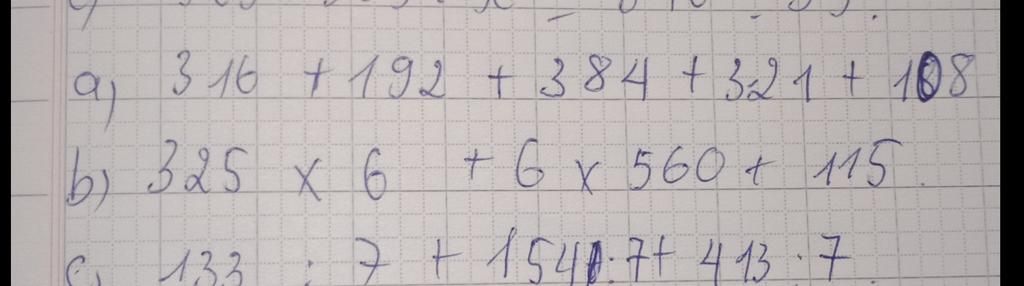 a) 316 + 192 + 384 + 321 + 108
b) 325 x 6 + 6 x 560 + 115
c) 133 : 7 + 154 : 7 + 413 : 7